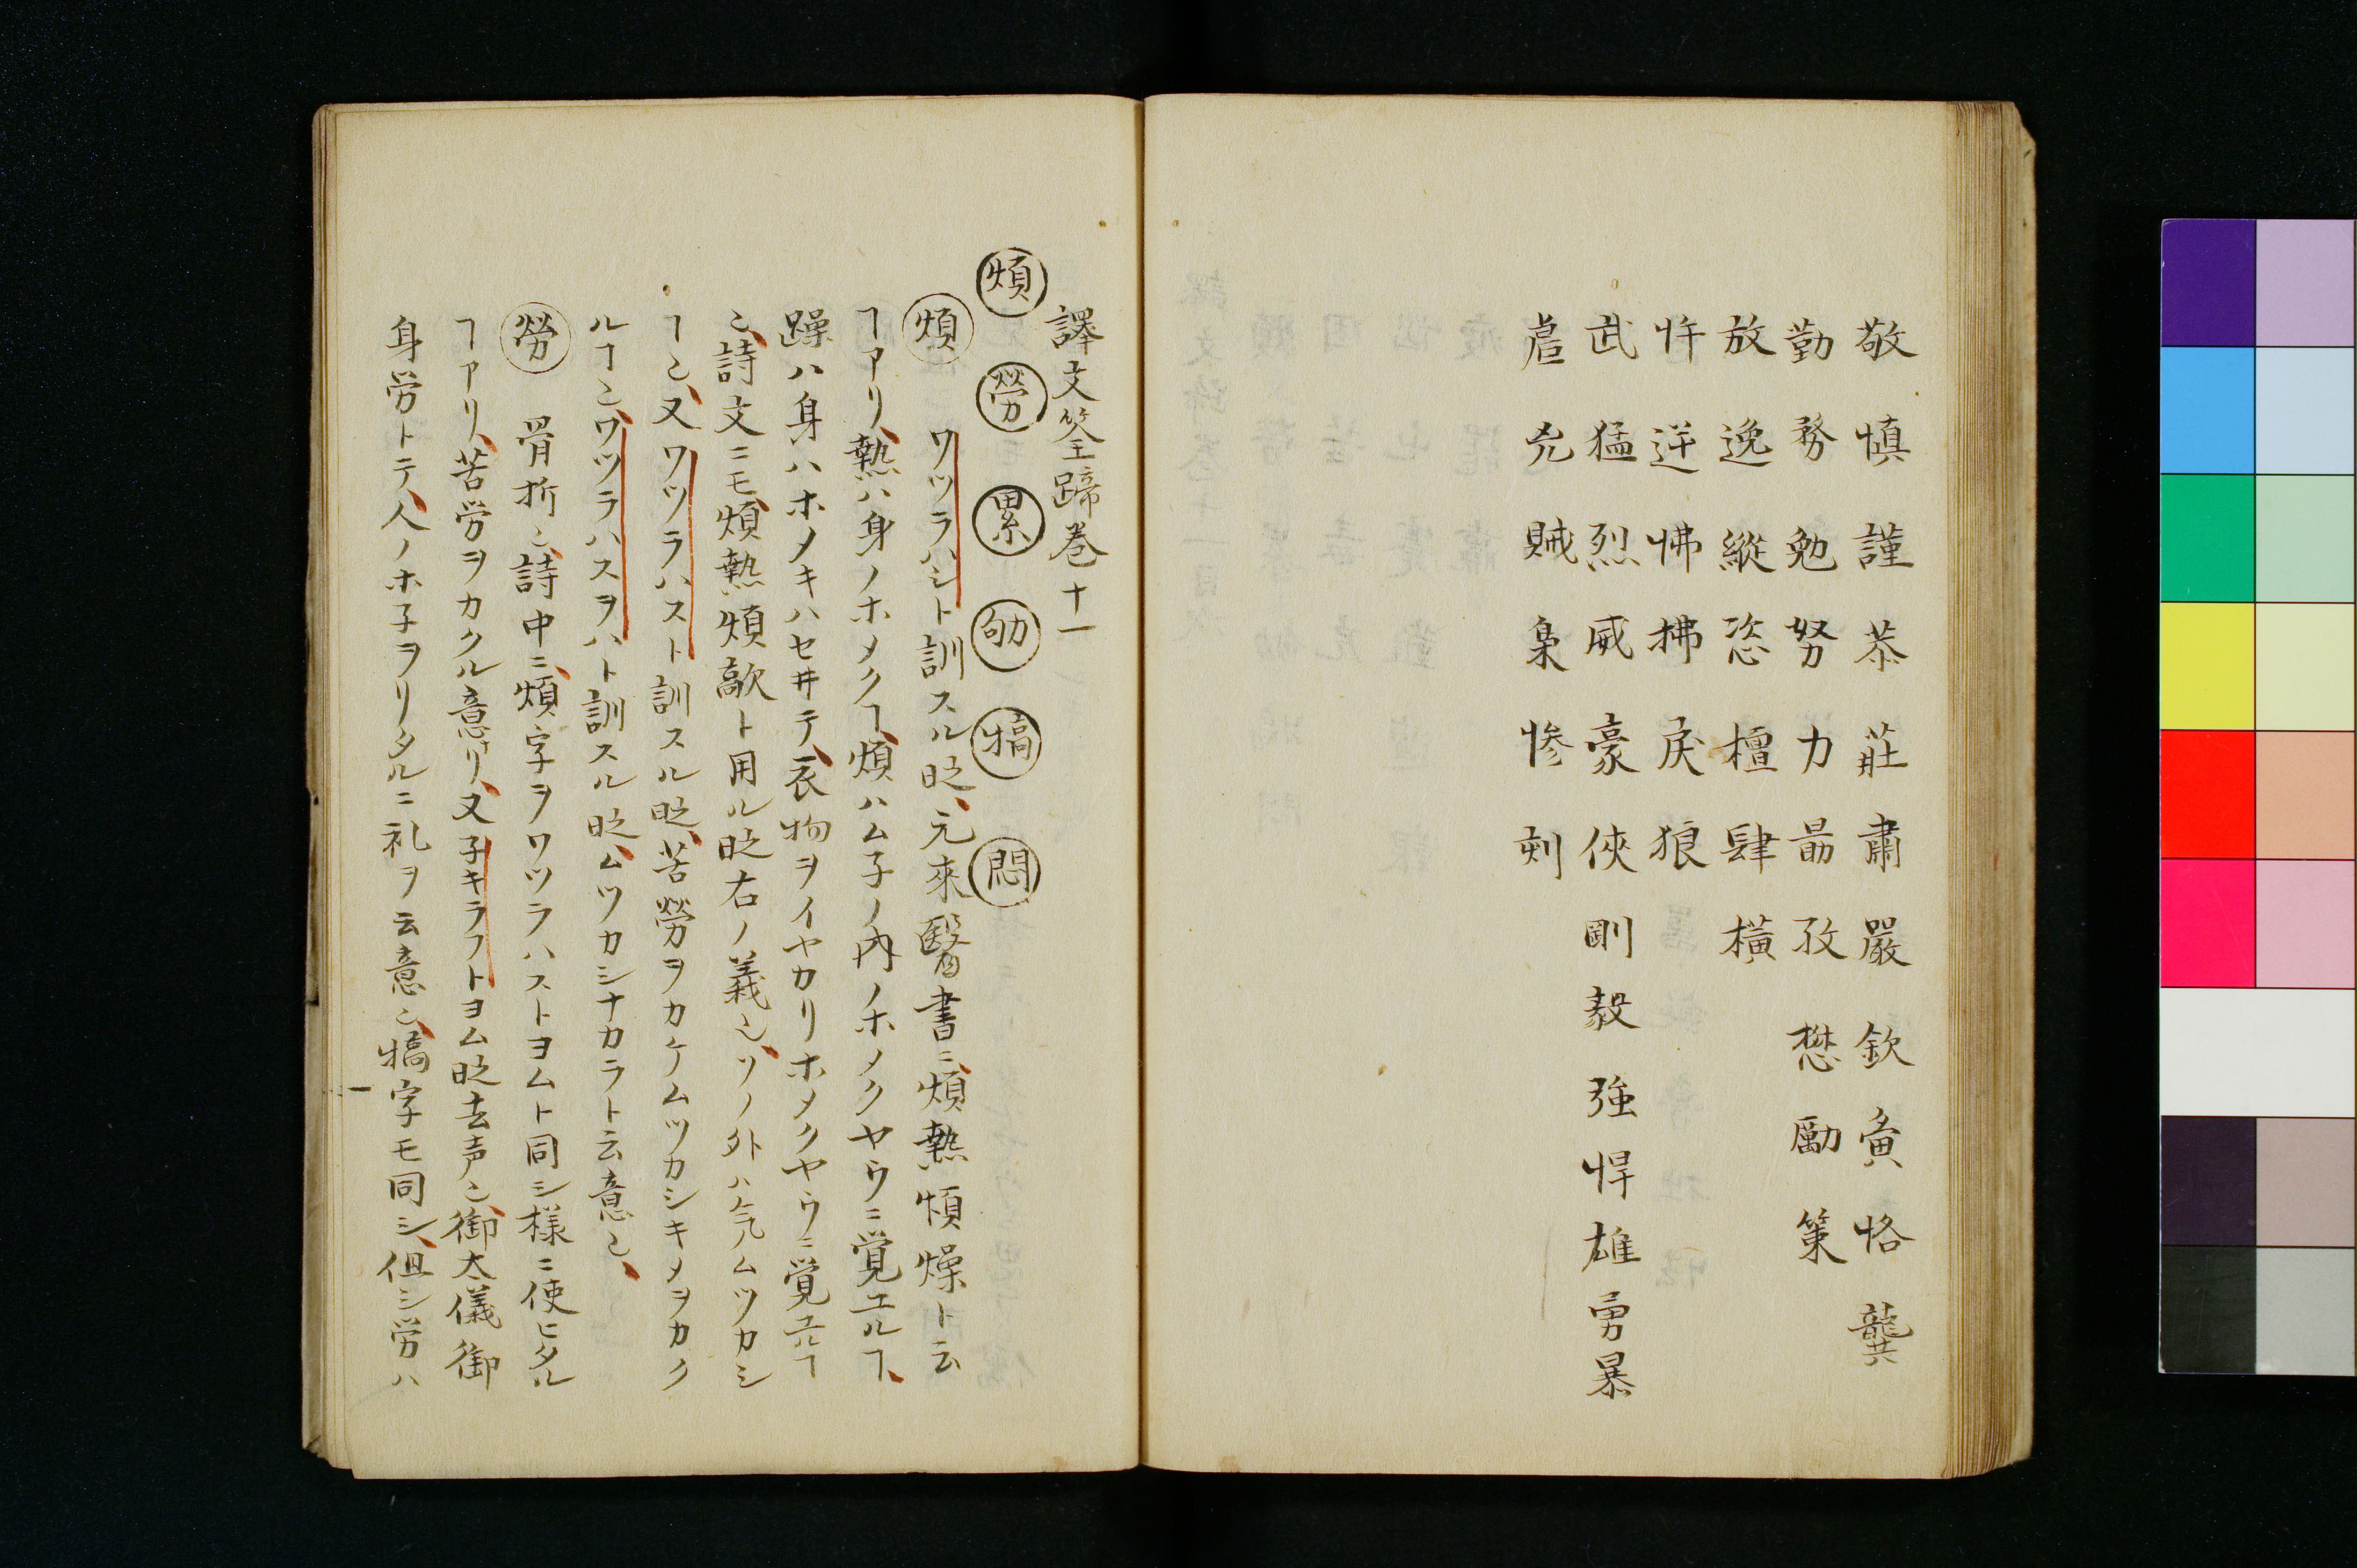 敬慎謹恭莊肅嚴欽夤恪龔
勤務勉努力勗孜懋勵策
放逸縱恣檀肆横
忤逆怫拂戾狼
武猛烈威豪俠剛毅強悍雄勇暴
虐兇賊梟惨刻
譯文筌蹄巻十一
煩勞累劬犒悶
煩 ワツラハシト訓スル時元來醫書ニ煩熱煩燥ト云
ヿアリ熱ハ身ノホメクヿ煩ハム子ノ内ノホメクヤウニ覚ユルヿ
躁ハ身ハホメキハセ井テ衣物ヲイヤカリホメクヤウニ覚ユルヿ
也詩文ニモ煩熱煩歊ト用ル時右ノ義也ソノ外ハ気ムツカシ
ヿ也又ワツラハスト訓スル時苦勞ヲカケムツカシキメヲカク
ルヿ也ワツラハスヲハト訓スル時ムツカシナカラト云意也
勞 骨折也詩中ニ煩字ヲワツラハストヨムト同シ様ニ使ヒタル
ヿアリ苦労ヲカクル意ナリ又子キラフトヨム時去声也御太儀御
身労トテ人ノホ子ヲリタルニ礼ヲ云意也犒字モ同シ但シ労ハ